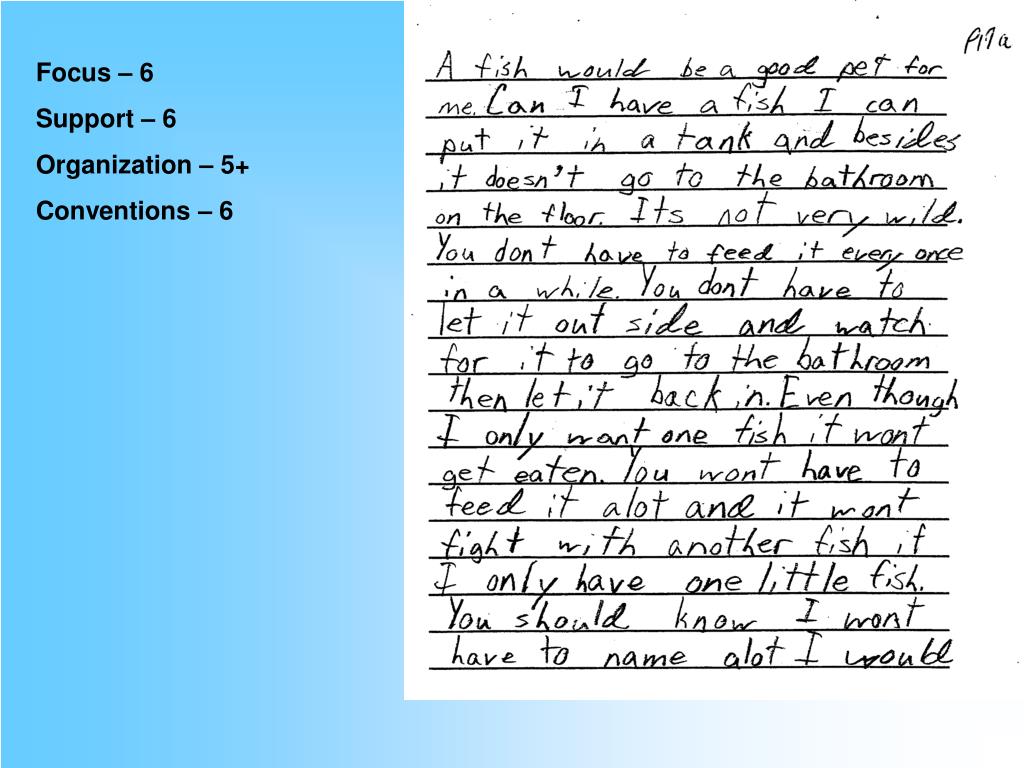 Focus – 6
Support – 6
Organization – 5+
Conventions – 6
P17a
A fish would be a good pet for
me. Can I have a fish I can
put it in a tank and besides
it doesn't go to the bathroom
on the floor. Its not very wild.
You dont have to feed it every once
in a while. You dont have to
let it out side and watch
for it to go to the bathroom
then let it back in. Even though
I only want one fish it wont
get eaten. You wont have to
feed it alot and it wont
fight with another fish if
I only have one little fish.
You should know I wont
have to name alot I would